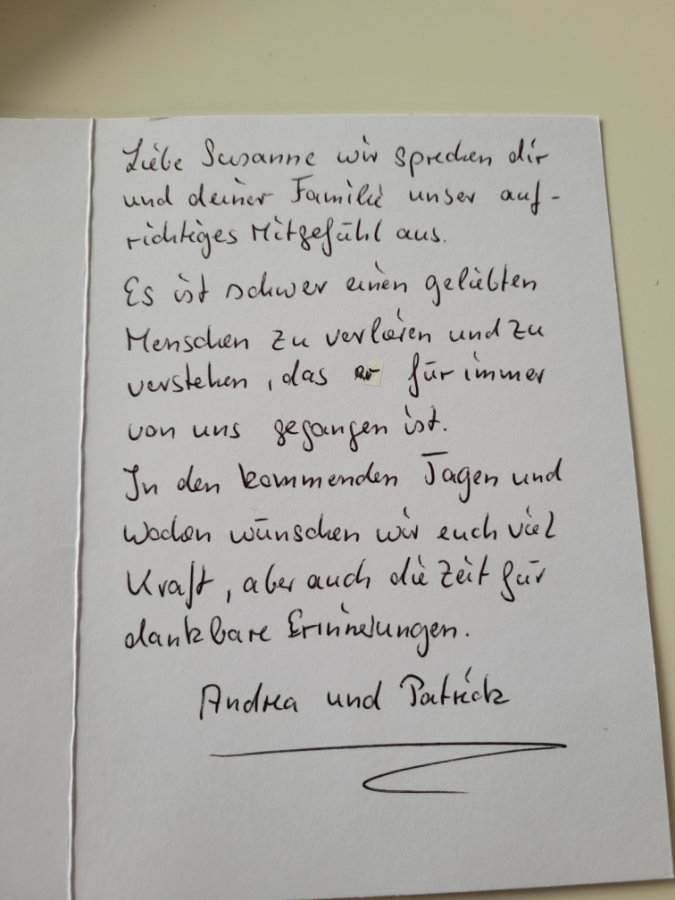 Liebe Susanne wir sprechen dir
und deiner Familie unser auf-
richtiges Mitgefühl aus.
Es ist schwer einen geliebten
Menschen zu verlieren und zu
verstehen, das er für immer
von uns gegangen ist.
In den kommenden Tagen und
Wochen wünschen wir euch viel
Kraft, aber auch die Zeit für
dankbare Erinnerungen.
Andrea und Patrick